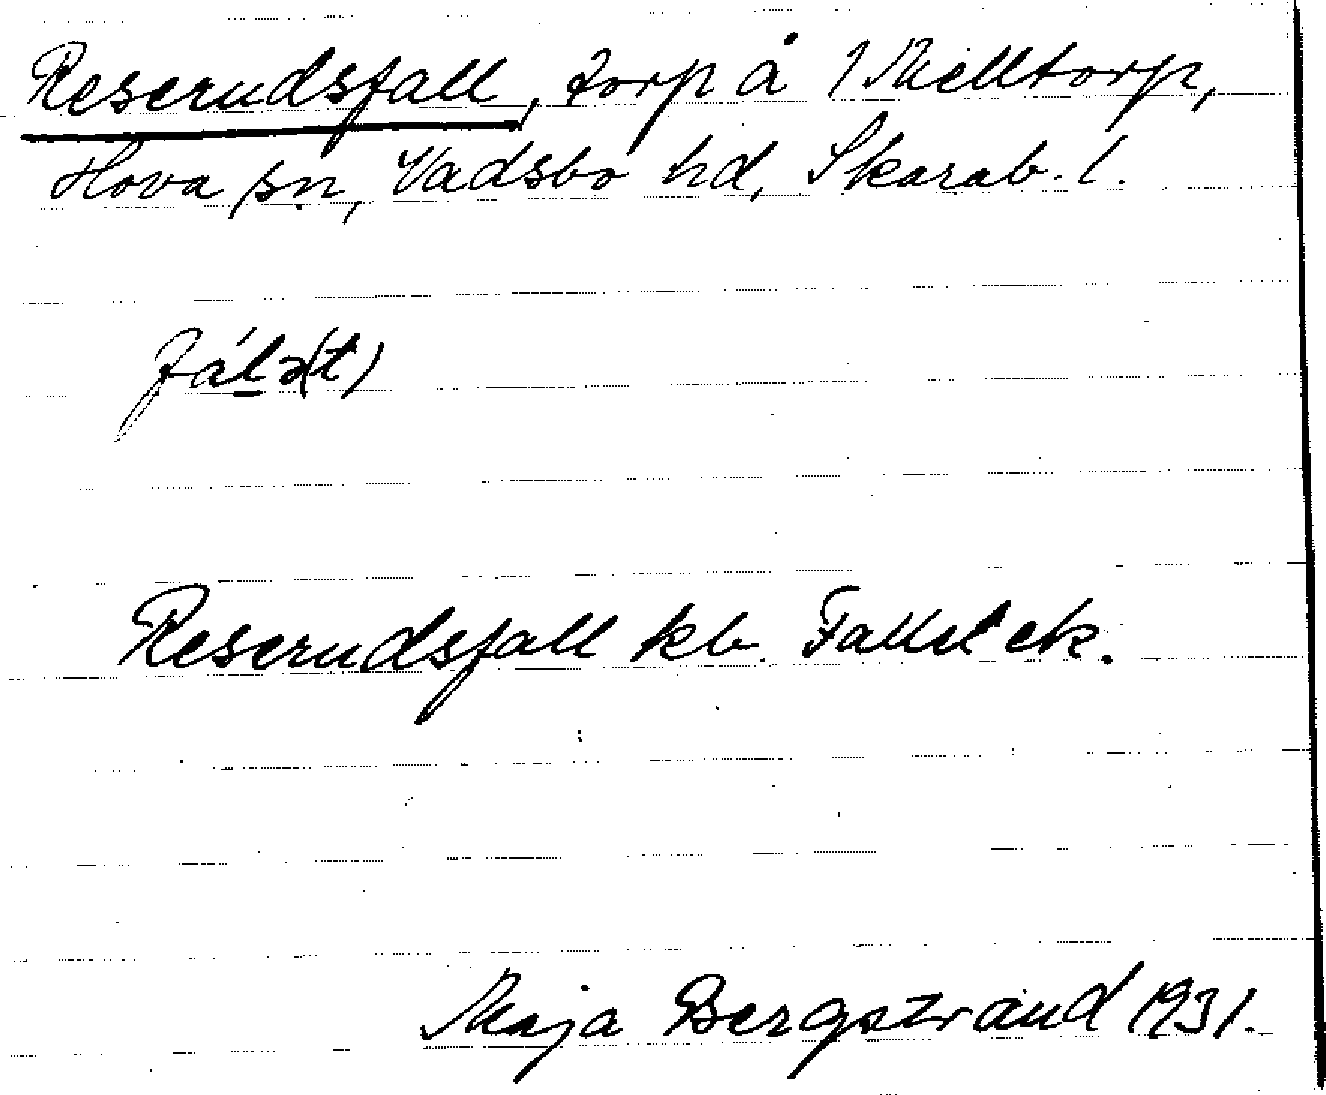 Reserudsfall, torp å 1 Melltorp,
Hova sn, Vadsbo hd, Skarab. l.
fálə(t)
Reserudsfall kb. Fallet ek.
Maja Bergstrand 1931.